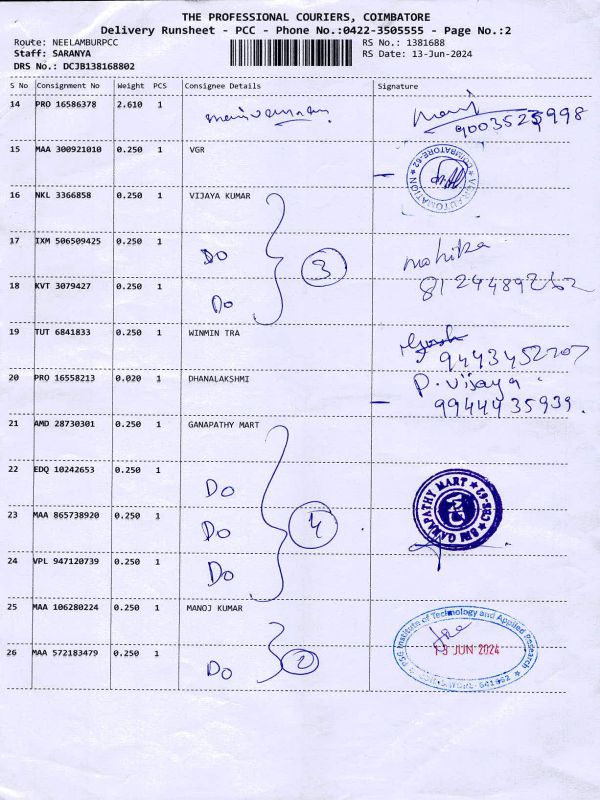 THE PROFESSIONAL COURIERS, COIMBATORE
Delivery Runsheet - PCC - Phone No.:0422-3505555 - Page No.:2
Route: NEELAMBURPCC RS No.: 1381688
Staff: SARANYA RS Date: 13-Jun-2024
DRS No.: DCJB138168802
S No Consignment No Weight PCS Consignee Details Signature
14 PRO 16586378 2.610 1
15 MAA 300921010 0.250 1 VGR
16 NKL 3366858 0.250 1 VIJAYA KUMAR
17 IXM 506509425 0.250 1 Do 3
18 KVT 3079427 0.250 1 Do
19 TUT 6841833 0.250 1 WINMIN TRA
20 PRO 16558213 0.020 1 DHANALAKSHMI P. Vijaya
9944435939.
21 AMD 28730301 0.250 1 GANAPATHY MART
22 EDQ 10242653 0.250 1 Do GANAPATHY MART
23 MAA 865738920 0.250 1 Do 4
24 VPL 947120739 0.250 1 Do
25 MAA 106280224 0.250 1 MANOJ KUMAR PSG Institute of Technology and Applied Research
13 JUN 2024
26 MAA 572183479 0.250 1 Do 2